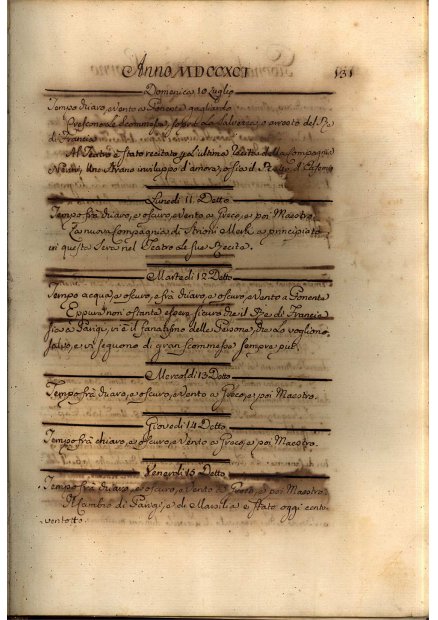 Anno MDCCXCI
131
Domenica 10 Luglio
Tempo chiaro, e vento a Ponente gagliardo
Crescono le scommesse, sopra La salvezza, o arresto del Rè
di Francia
Al Teatro è stato recitato per l'ultima recita della Compagnia
Nadini, Uno strano inviluppo d'amore, o sia il
Lunedi 11. Detto
Tempo frà chiaro, e oscuro, e vento a Greco, e poi Maestro.
La nuova Compagnia di Antonio Merk, a principiato
in questa Sera nel Teatro le sue Recite.
Martedi 12 Detto
Tempo acqua, e oscuro, e frà chiaro, e oscuro, e vento a Ponente
Eppure non ostante essere sicuro che il Rè di Francia
sia a Parigi, vi è il fanatismo delle Persone, che Lo vogliono
salvo, e vi seguono di gran scommesse sempre più.
Mercoldi 13 Detto
Tempo frà chiaro, e oscuro, e vento a Greco, e poi Maestro.
Giovedi 14 Detto
Tempo frà chiaro, e oscuro, e vento a Greco, e poi Maestro.
Venerdi 15 Detto
Tempo frà chiaro, e oscuro, e vento a Greco, e poi Maestro.
Il Cambio di Parigi, e di Marsilia è stato oggi cento
ventotto.